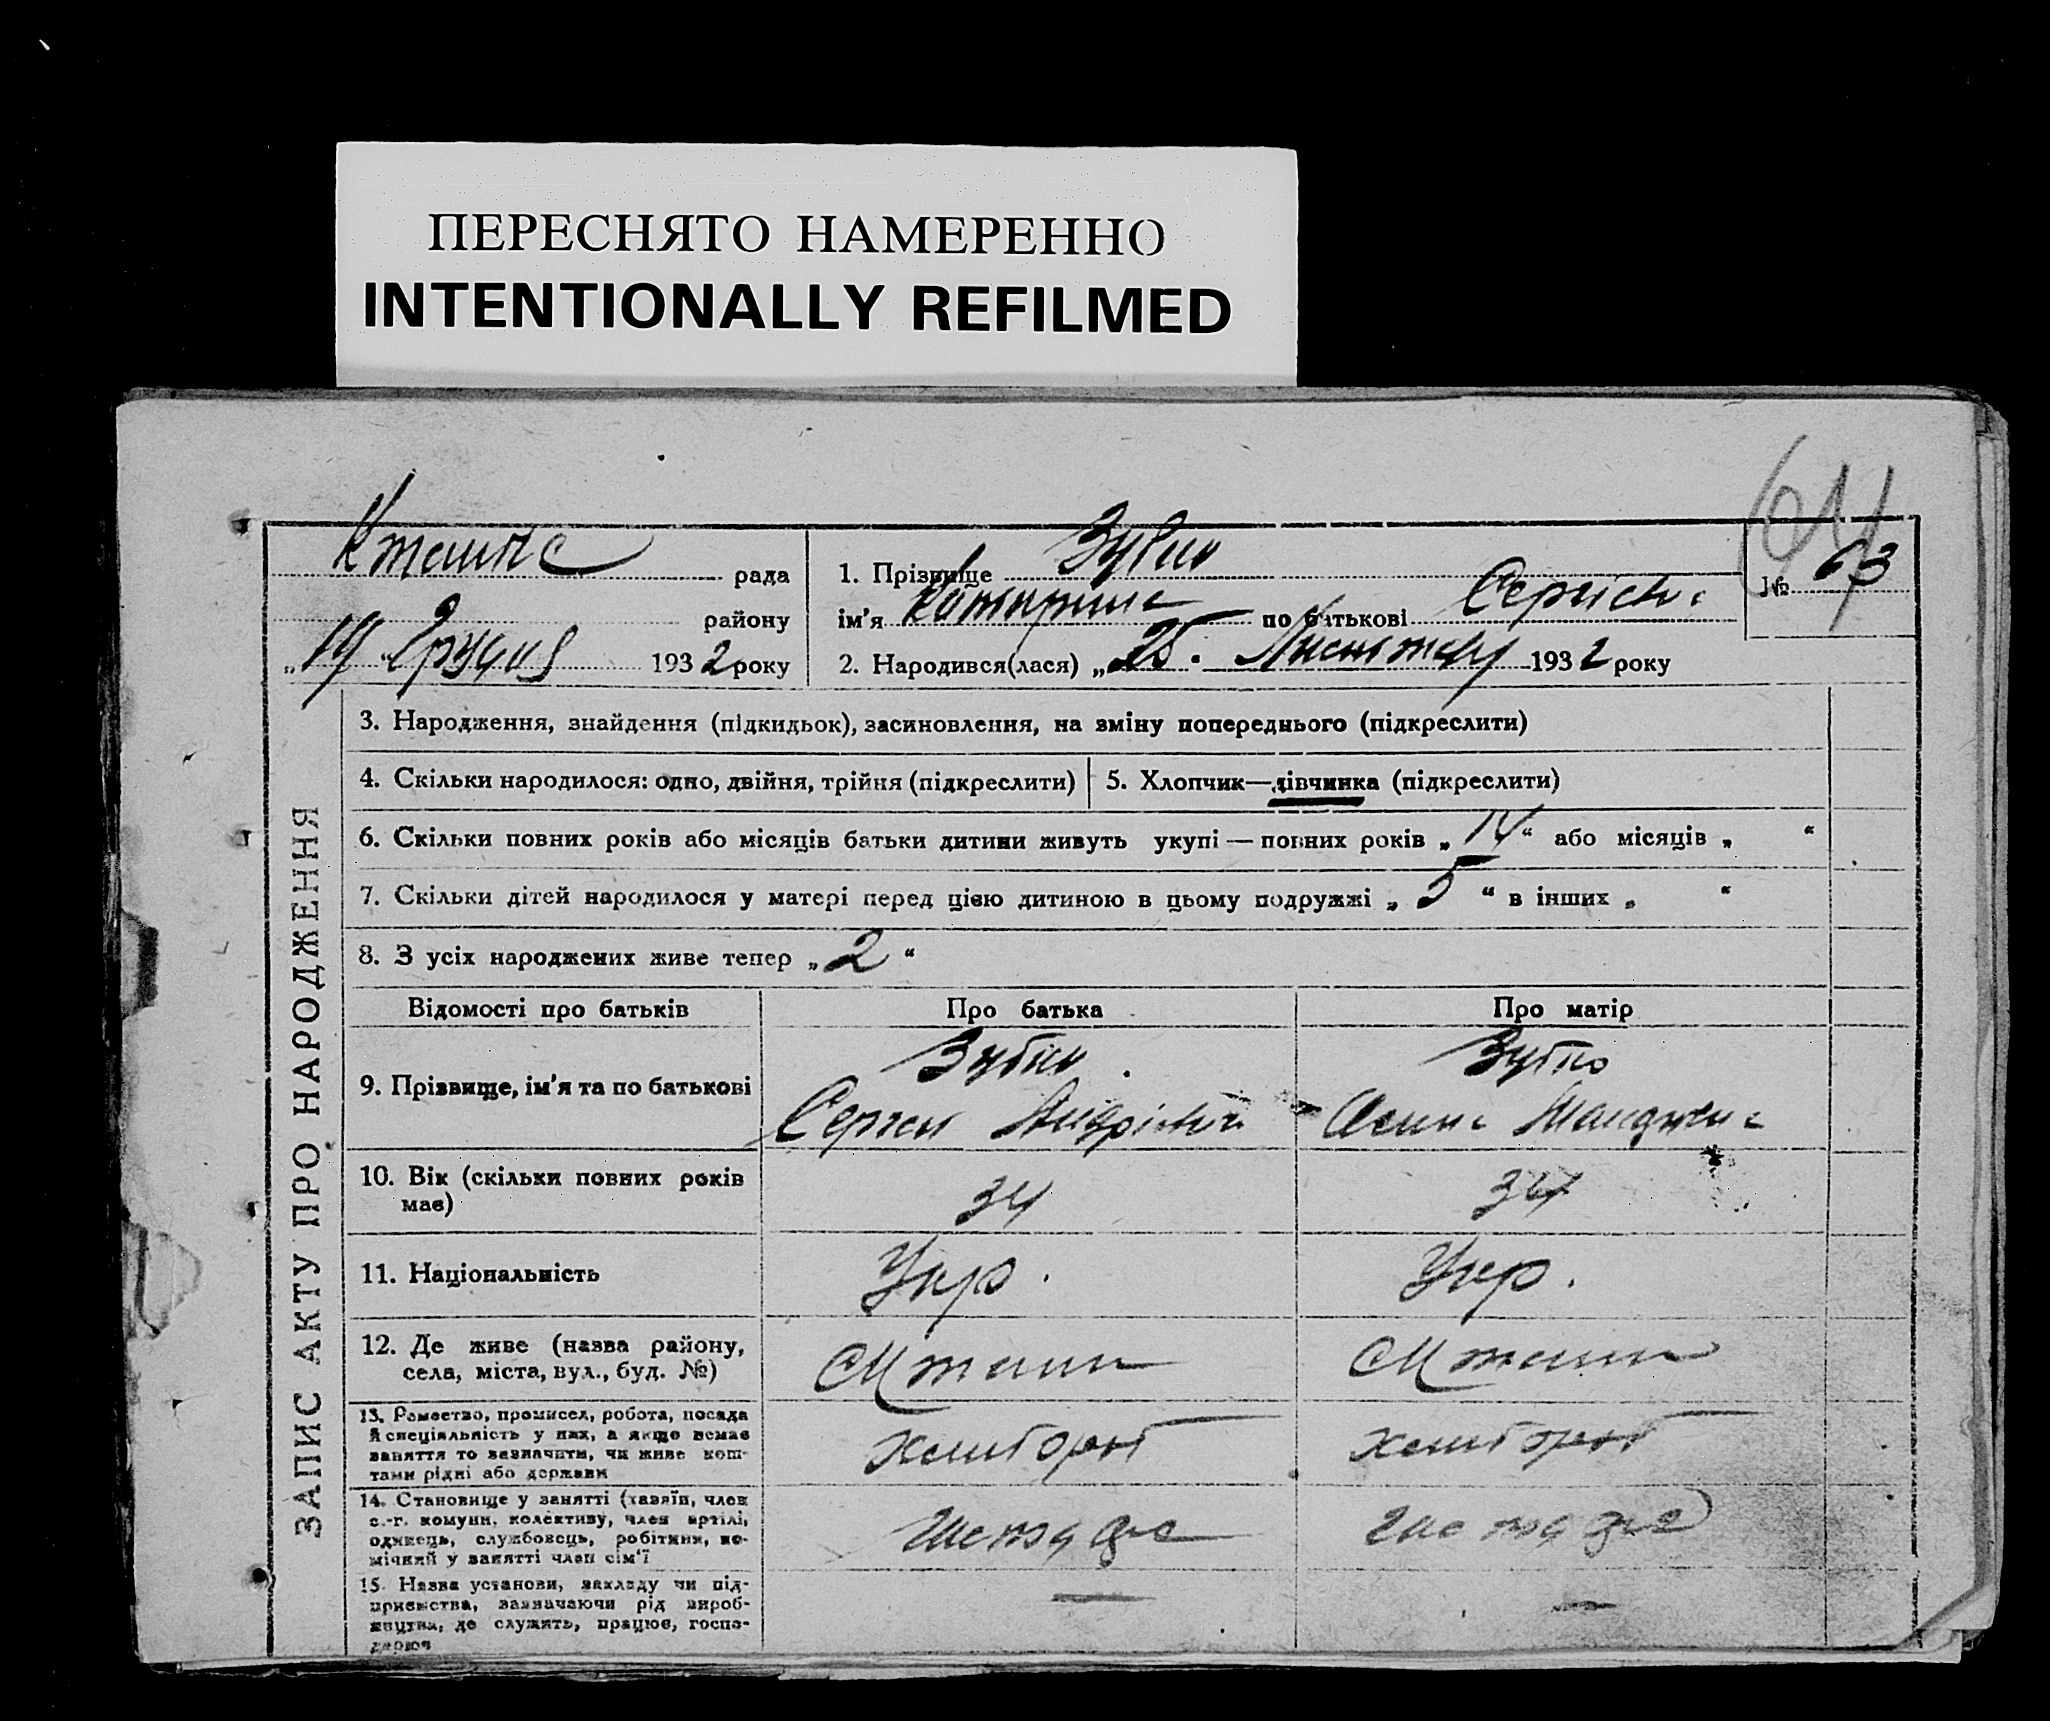 ПЕРЕСНЯТО НАМЕРЕННО
INTENTIONALLY REFILMED
рада
району
„19 Грудня 1932 року
1. Прізвище Зубко
ім'я Катерина по батькові Сергієвна
№ 63
2. Народився(лася) „25. Листопаду 1932 року
ЗАПИС АКТУ ПРО НАРОДЖЕННЯ
3. Народження, знайдення (підкидьок), засиновлення, на зміну попереднього (підкреслити)
4. Скільки народилося: одно, двійня, трійня (підкреслити)
5. Хлопчик—дівчинка (підкреслити)
6. Скільки повних років або місяців батьки дитини живуть укупі — повних років „14“ або місяців „ “
7. Скільки дітей народилося у матері перед цією дитиною в цьому подружжі „ 5 “ в інших „ “
8. З усіх народжених живе тепер „2“
Відомості про батьків Про батька Про матір
9. Прізвище, ім'я та по батькові
Зубко Зубко
Сергей Андрієвич
10. Вік (скільки повних років має)
34 34
11. Національність
Укр. Укр.
12. Де живе (назва району,
села, міста, вул., буд. №)
13. Ремество, промисел, робота, посада
й спеціяльність у них, а якщо немає
заняття то зазначити, чи живе кош-
тами рідні або держави
хлібороб хлібороб
14. Становище у занятті (хазяїн, член
с.-г. комуни, колективу, член артілі,
одинець, службовець, робітник, по-
мічний у занятті член сім'ї
15. Назва установи, закладу чи під-
приємства, зазначаючи рід вироб-
ництва, де служить, працює, госпо-
дарює
— —